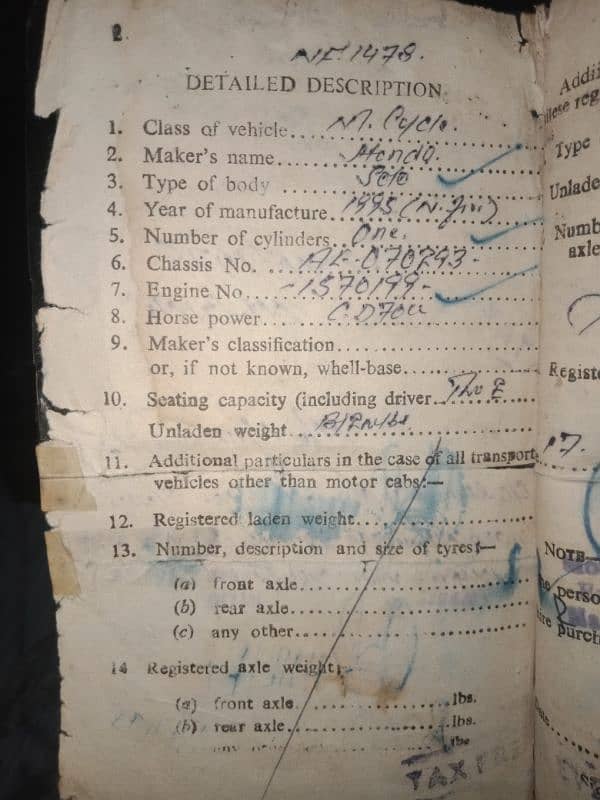 2.
NE. 1478.
DETAILED DESCRIPTION
1. Class of vehicle... M. Cycle.
2. Maker's name... Honda.
3. Type of body ... Solo
4. Year of manufacture. 1995
5. Number of cylinders.. One.
6. Chassis No. ...
7. Engine No.... 1570199-
8. Horse power... CD70cc
9. Maker's classification...
or, if not known, whell-base...
10. Seating capacity (including driver... Two
Unladen weight...
11. Additional particulars in the case of all transport
vehicles other than motor cabs:—
12. Registered laden weight...
13. Number, description and size of tyres:—
(a) front axle...
(b) rear axle...
(c) any other...
14 Registered axle weight:
(a) front axle... lbs.
(b) rear axle... lbs.
any lbs
TAX
Additi
these reg
Type
Unlade
Numb
axle
Registe
17.
NOTE—
perso
ire purch